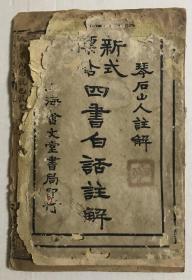 琴石山人註解
新式
標點
四書白話註解
上海會文堂書局印行